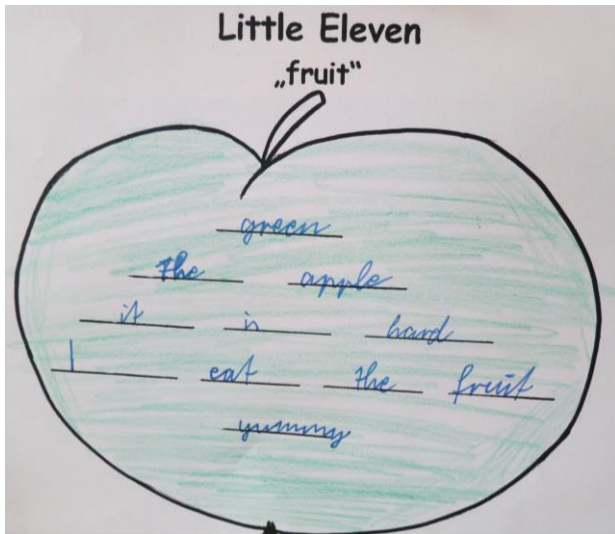 Little Eleven
„fruit“
green
the apple
it is hard
I eat the fruit
yummy